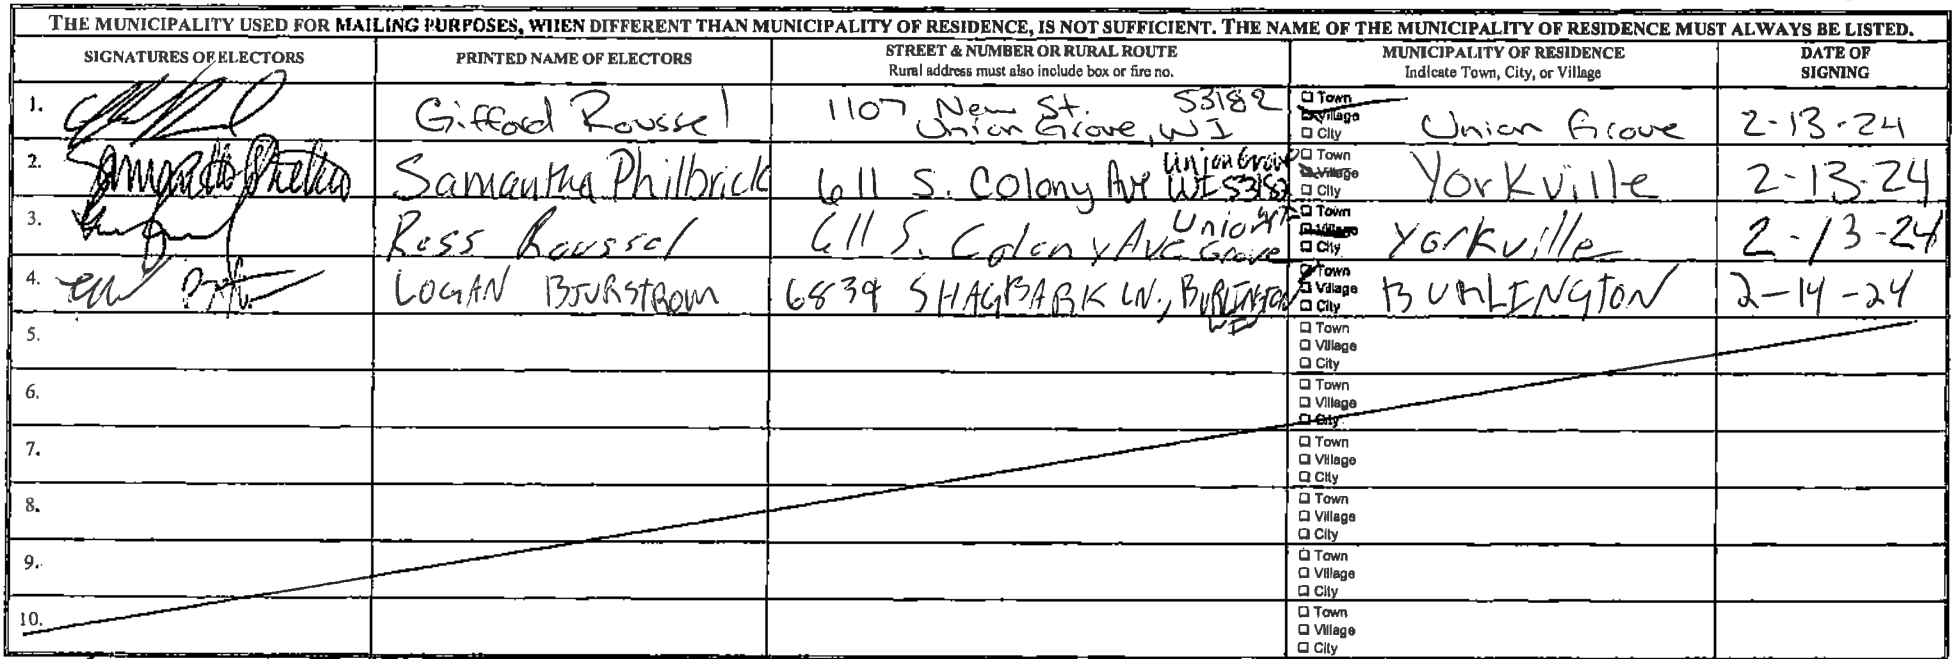 THE MUNICIPALITY USED FOR MAILING PURPOSES, WHEN DIFFERENT THAN MUNICIPALITY OF RESIDENCE, IS NOT SUFFICIENT. THE NAME OF THE MUNICIPALITY OF RESIDENCE MUST ALWAYS BE LISTED.
SIGNATURES OF ELECTORS
PRINTED NAME OF ELECTORS
STREET & NUMBER OR RURAL ROUTE
Rural address must also include box or fire no.
MUNICIPALITY OF RESIDENCE
Indicate Town, City, or Village
DATE OF
SIGNING
1.
Gifford Roussel
1107 New St. 53182
Union Grove, WI
Town
Village
City
Union Grove
2-13-24
2.
Samantha Philbrick
611 S. Colony Ave Union Grove
WI 53182
Town
Village
City
Yorkville
2-13-24
3.
Ross Roussel
611 S. Colony Ave Union
Grove WI
Town
Village
City
Yorkville
2-13-24
4.
LOGAN BJURSTROM
6839 SHAGBARK LN., BURLINGTON
WI
Town
Village
City
BURLINGTON
2-14-24
5.
Town
Village
City
6.
Town
Village
City
7.
Town
Village
City
8.
Town
Village
City
9.
Town
Village
City
10.
Town
Village
City